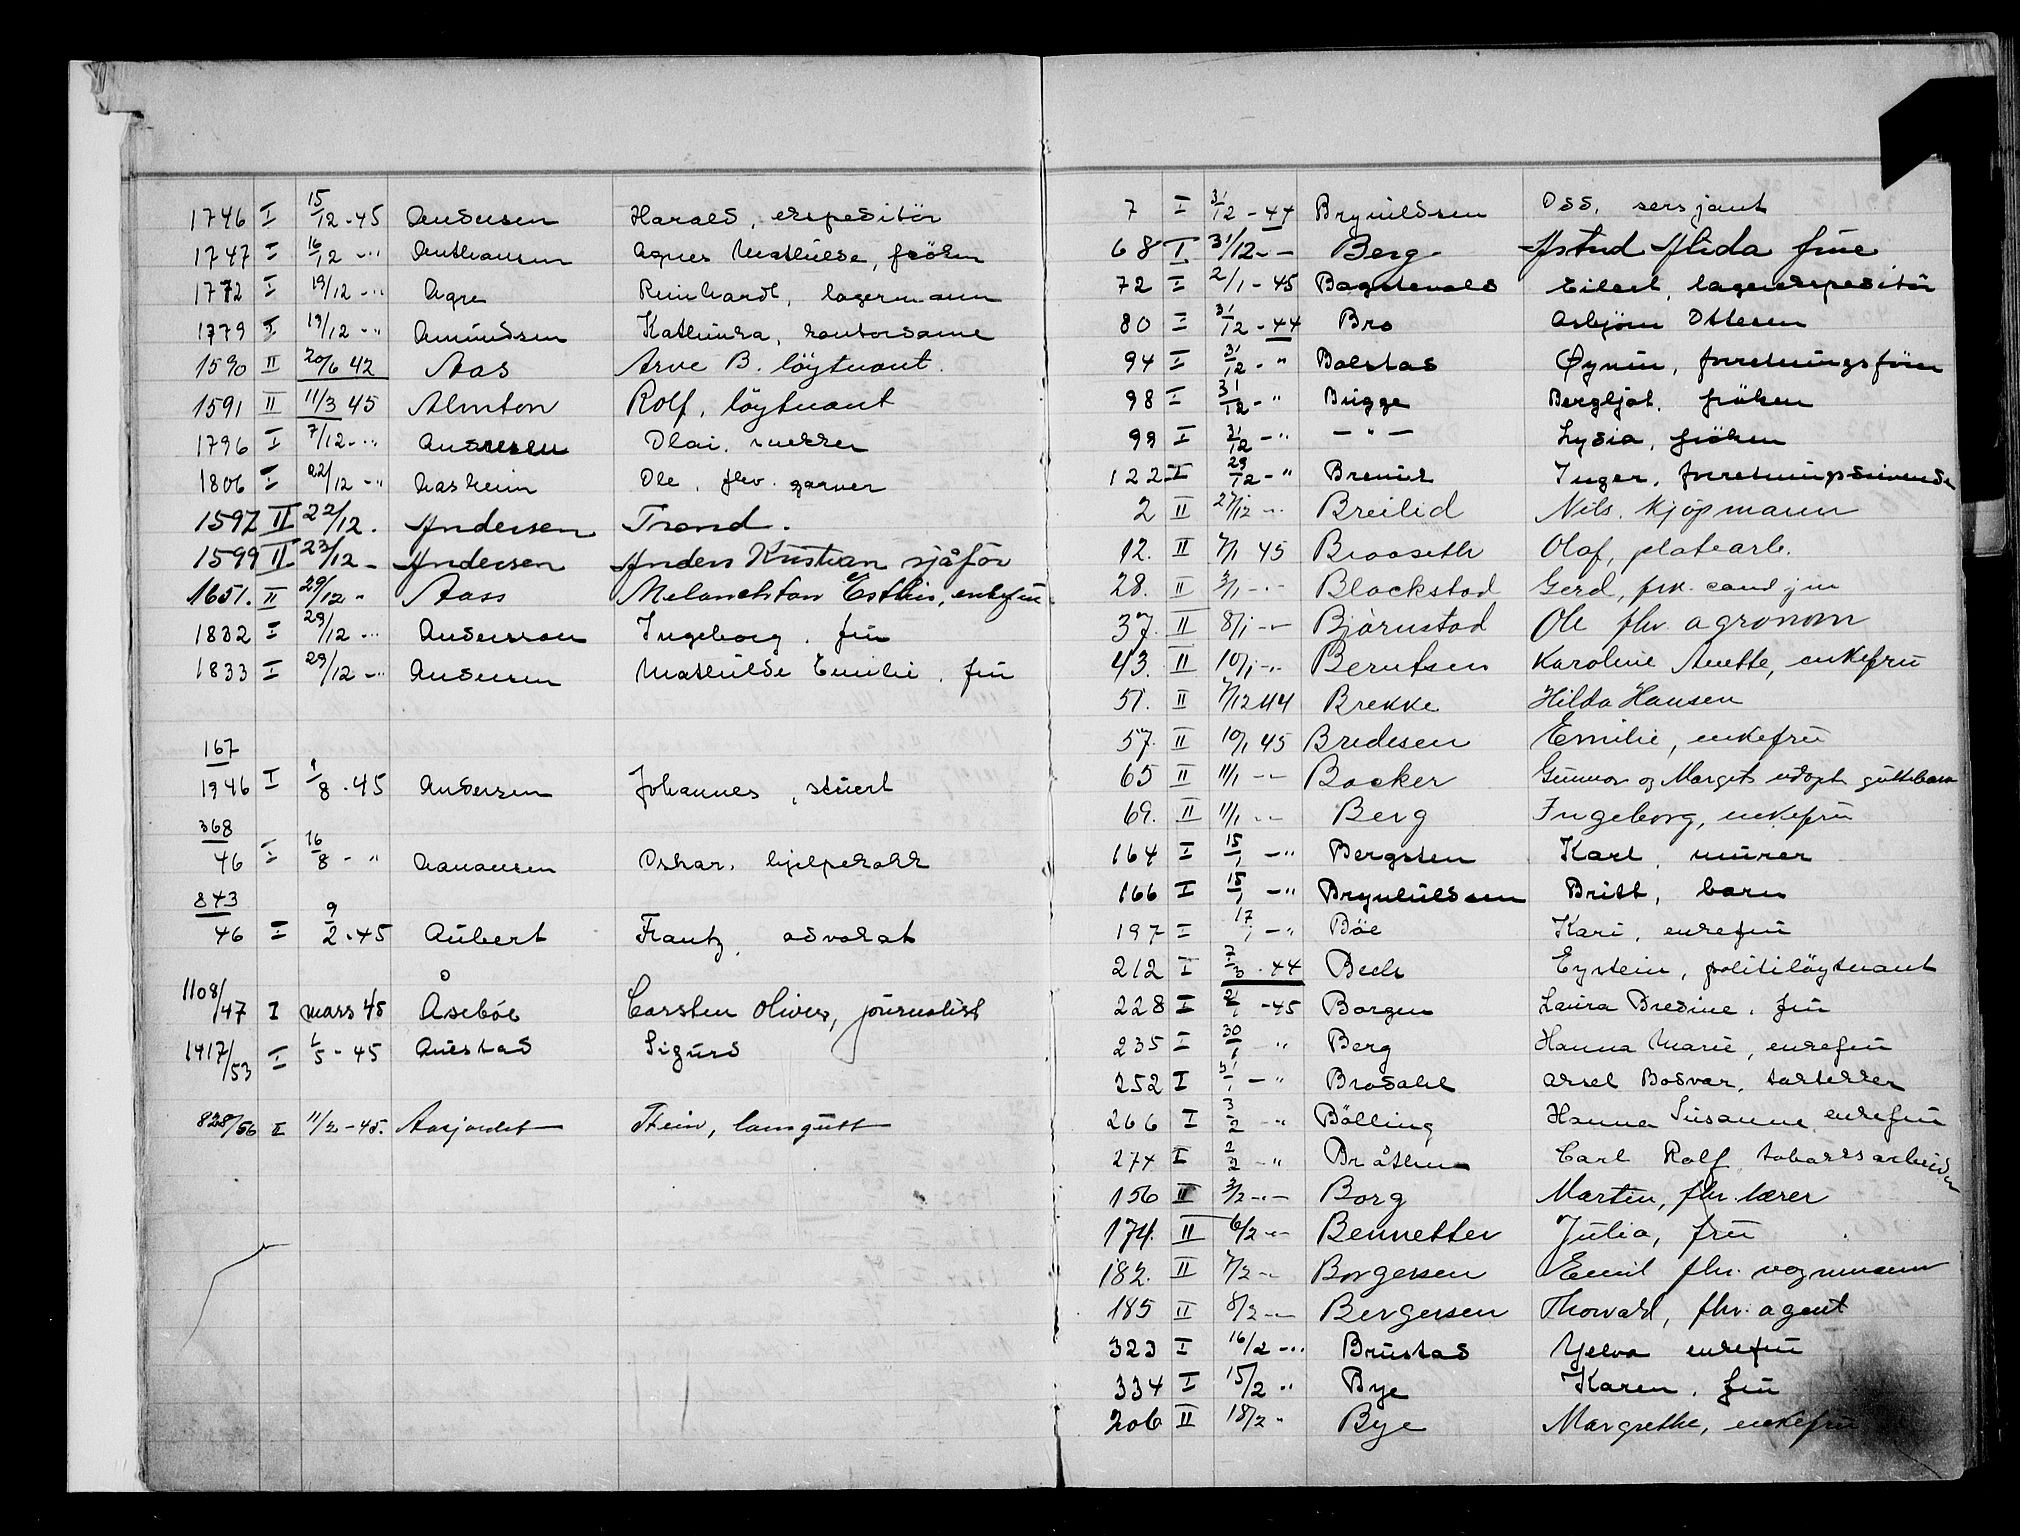 1746 I 15/12-45 Andersen Harald, ekspeditör
1747 I 16/12 -"- Anthonsen Agnes Mathilde, fröken
1772 I 19/12 -"- Agre Reinhardt, lagermann
1779 I 19/12 -"- Amundsen Kathinka, kontordame
1590 II 20/6 42 Aas Arve B. löytnant.
1591 II 11/3 45 Almton Rolf, löytnant
1796 I 7/12 -"- Andresen Olai, snekker
1806 I 22/12 -"- Aasheim Ole, fhv. garver
1597 II 22/12. Andersen Trond.
1599 II 23/12 - Andersen Anders Kristian sjåför
1651. II 29/12 - Aass Melanchton, enkefru
1832 I 29/12 -"- Andersson Ingeborg, fru
1833 I 29/12 -"- Andersen Mathilde Emilie, fru
167
1946 I 1/8 - 45 Andersen Johannes, stuert
368
46 I 16/8 - " Aanonsen Oskar, hjelpekokk
843
46 I 9/2 - 45 Aubert Frantz, advokat
1108/47 I mars 45 Åseböe Carsten Oliver, journalist
1417/53 I 1/5 - 45 Austad Sigurd
828/56 II 11/2 - 45. Aasjordet Stein, laugutt
7 I 31/12 - 44 Brynildsen Odd, sersjant
68 I 31/12 - - Berg Astrid Alida frue
72 I 2/1 - 45 Bogstevold Eilert, lagerekspeditör
80 I 31/12 - 44 Bro Asbjörn Ottesen
94 I 31/12 - " Bolstad Øyvin, forretningsförer
98 I 31/12 - " Bugge Bergljot, fröken
99 I 31/12 - " — " — Lydia, fröken
122 I 29/12 - " Inger, forretningsdrivende
2 II 27/12 -"- Breilid Nils, Kjöpmann
12. II 7/1 45 Braaseth Olaf, platearb.
28. II 3/1 -"- Blackstad Gerd, frk. cand jur
37. II 8/1 -"- Bjørnstad Ole fhv. agronom
43. II 10/1 -"- Berntsen Karoline Anette, enkefru
51. II 7/12 44 Brekke Hilda Hansen
57. II 10/1 45 Bredesen Emilie, enkefru
65 II 11/1 -"- Backer Gunnar og Margit udöpt guttebarn
69. II 11/1 -"- Berg Ingeborg, enkefru
164 I 15/1 - " Bergsten Karl, murer
166 I 15/1 - " Brynhildsen Britt, barn
197 I 17/1 - " Böe Kari, enkefru
212 I 7/3 - 44 Bech Eystein, politilöytnant
228 I 21/1 - 45 Borgen Laura Bredine, fru
235 I 30/1 " Berg Hanna Marie, enkefru
252 I 31/1 - " Brodahl Aksel Bodvar, takstekker
266 I 3/2 - " Bölling Hanna Susanne, enkefru
274 I 2/2 - " Bråthen Carl Rolf, tobakksarbeider
156 II 3/2 -"- Borg Martin, fhv. lærer
174. II 6/2 -"- Bennetter Julia, fru
182. II 7/2 -"- Borgersen Emil fhv. vognmann
185 II 8/2 -"- Bergersen Thorvald, fhv. agent
323 I 16/2 -"- Brustad Yelva enkefru
334 I 15/2 " Bye Karen, fru
206 II 18/2 " Bye Margrethe, enkefru